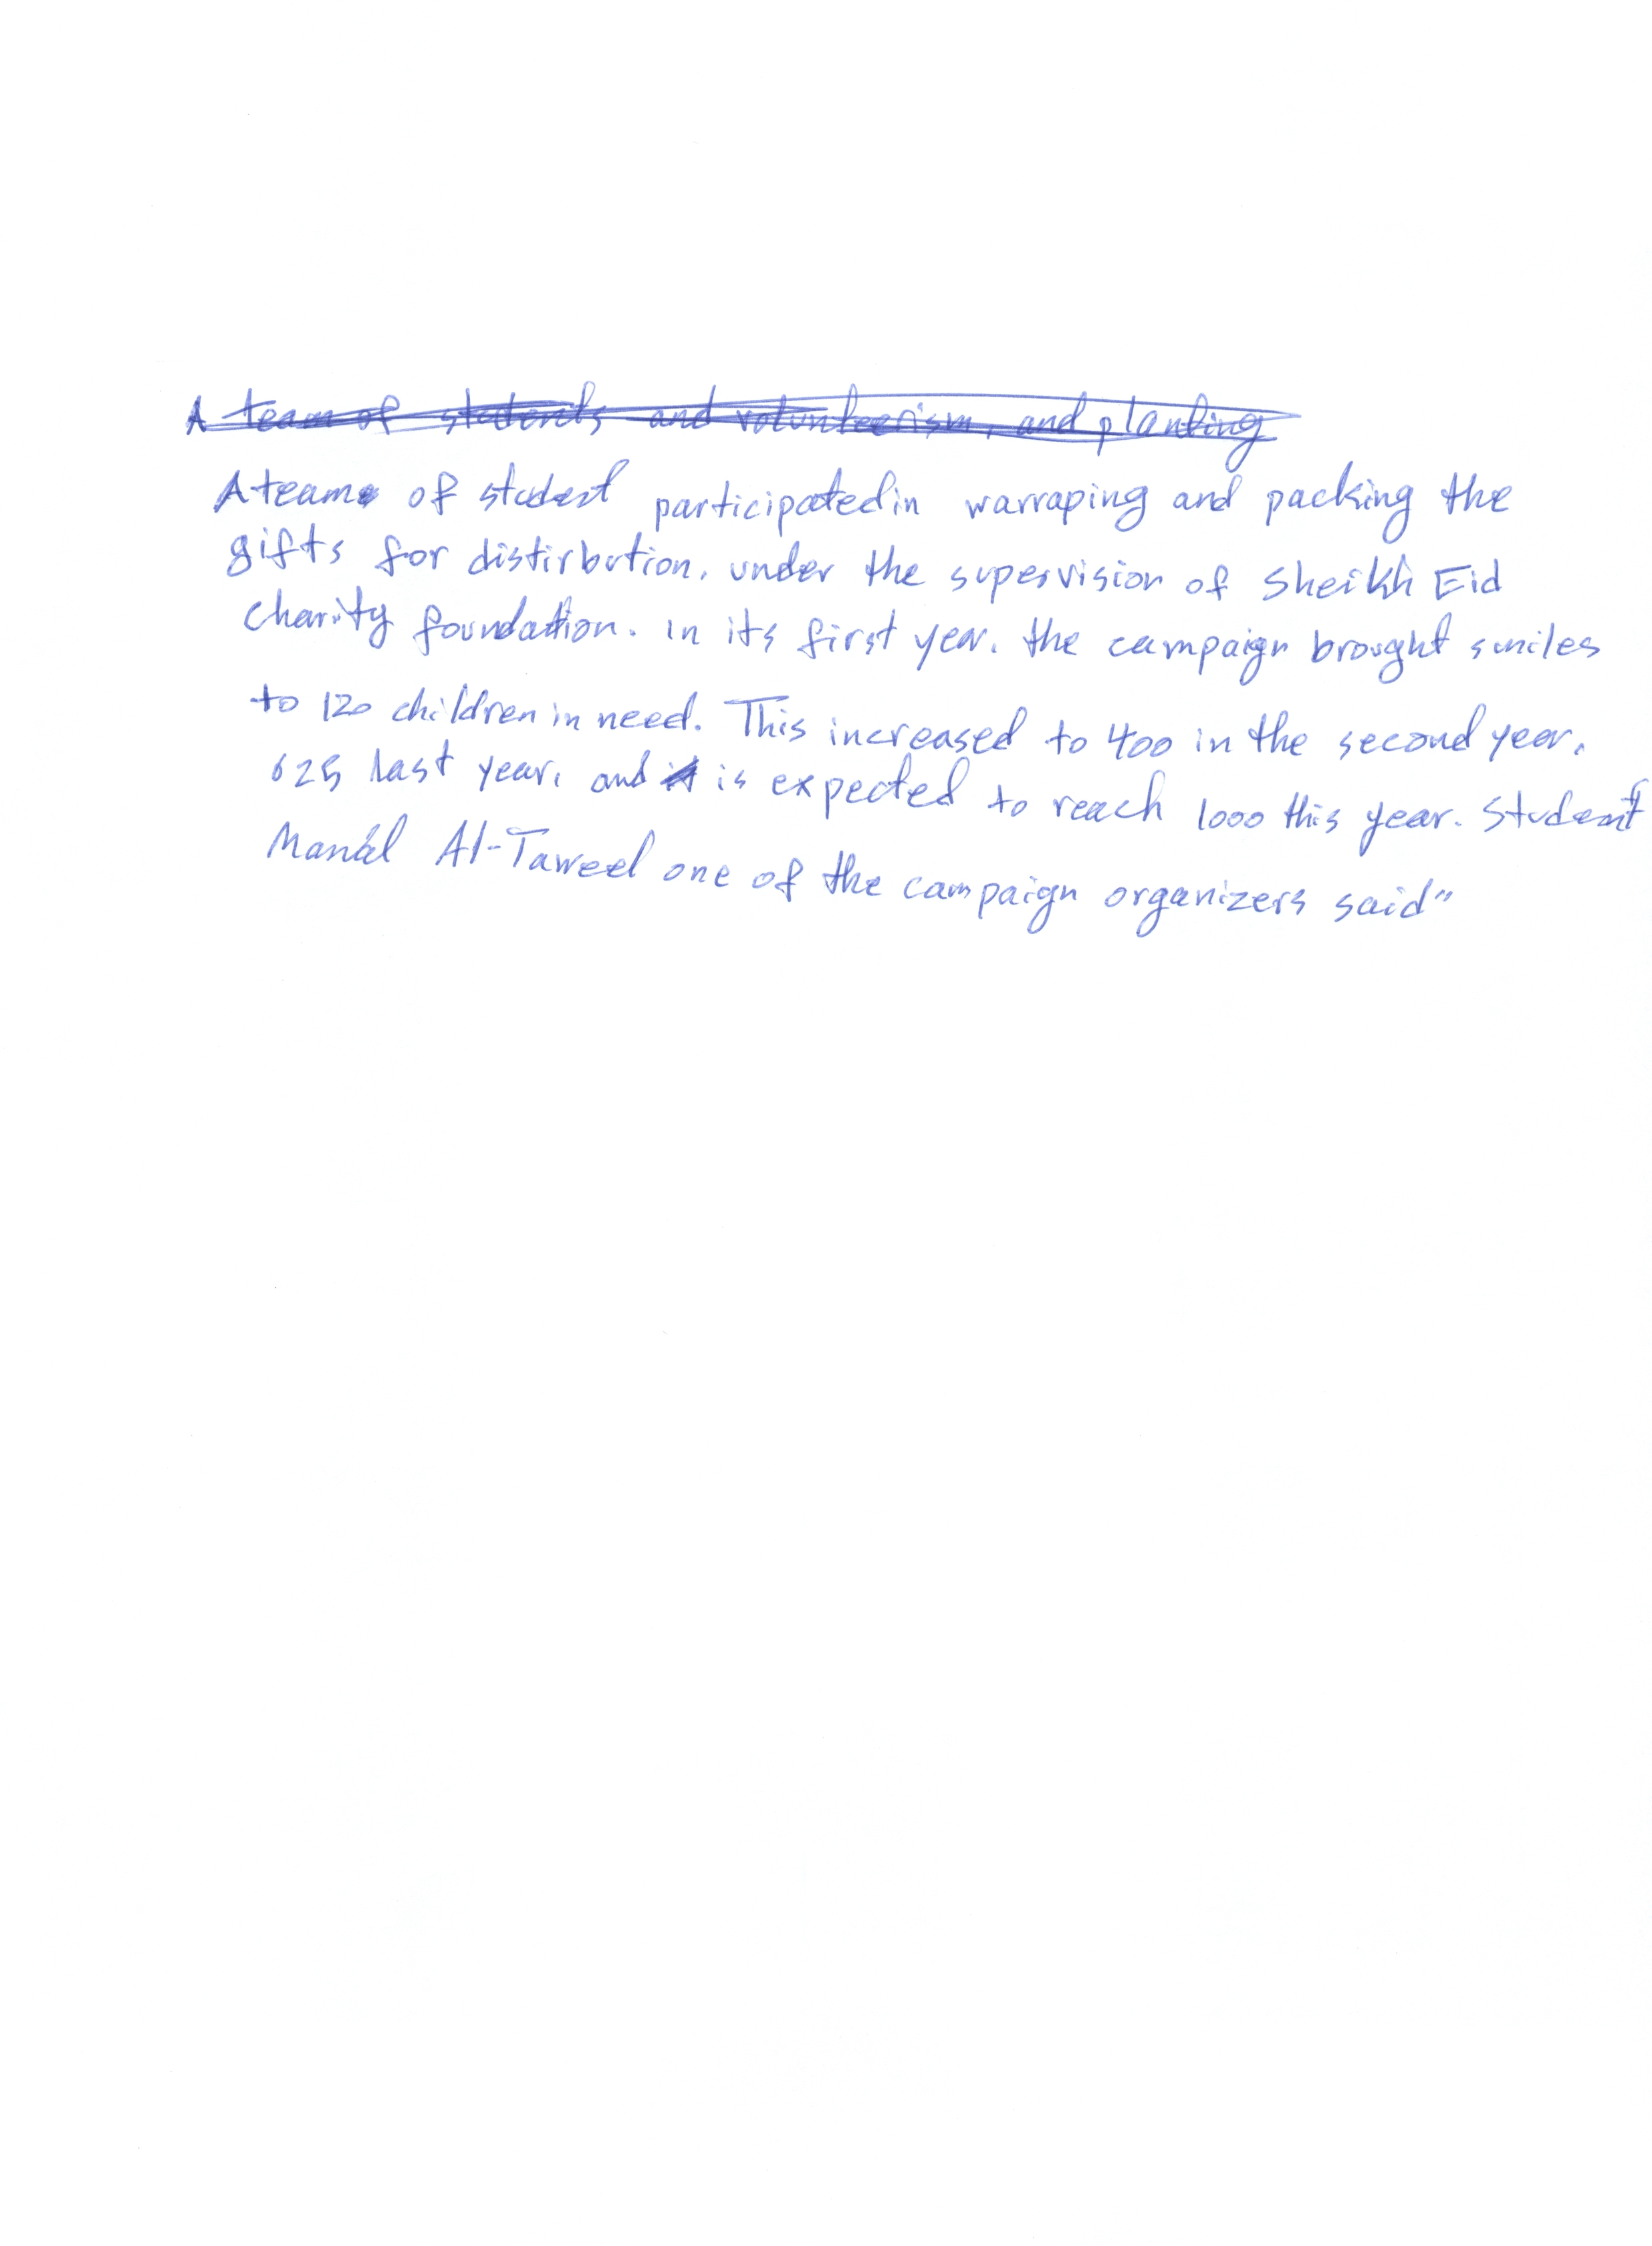 A team of students and volunteerism, and planting
A team of student participated in warraping and packing the
gifts for distirbution, under the supervision of Sheikh Eid
Charity foundation. In its first year, the campaign brought smiles
to 120 children in need. This increased to 400 in the second year,
625 last year, and is expected to reach 1000 this year. Student
Manal Al-Taweel one of the campaign organizers said"